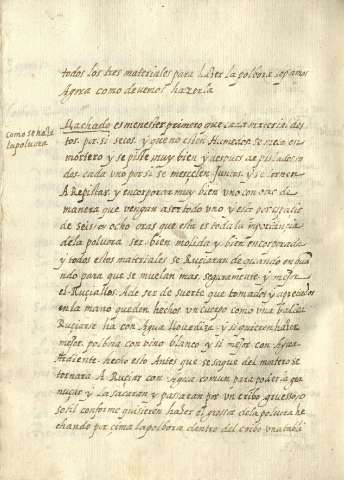 todos los tres materiales para hazer la polbora sepamos
Agora como devemos hazerla
como se haze
la polvora
Machado es menester primero que cada material des
tos por si secos y que no esten humedos se mean en
mortero y se piste muy bien y despues de pistados to
dos cada uno por si se mesclen juntos y se tornen
A Repistar y encorporar muy bien uno con otro de
manera que vengan a ser todo uno y esto por espatio
de seis o ocho oras que esta es toda la inportancia
de la polvora ser bien molida y bien encorporada
y todos estos materiales se Ruciaran de quando en qua
ndo para que se muelan mas seguramente y mejor
el Ruciallos A de ser de suerte que tomados y apretados
en la mano queden hechos un cuerpo como una bala
Ruciarse ha con Agua llovediza y si quieren hazer
mejor polbora con vino blanco y si mejor con Aguar
diente hecho esto Antes que se saque del mortero se
tornara A Ruciar con Agua comun para poderla gra
nuçar y la sacaran y pasaran por un cribo gruesso o
sotil conforme quisieren hazer el grossor de la polvora he
chando por cima la polbora dentro del cribo una tabli